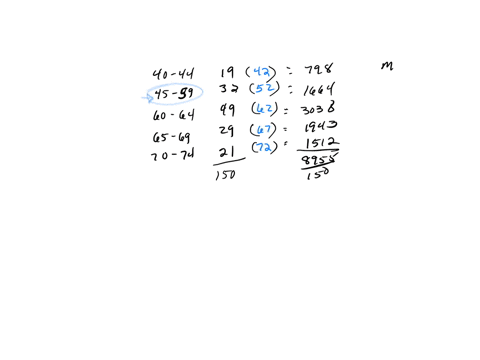 40-44 19 (42) = 798 m
45-59 32 (52) = 1664
60-64 49 (62) = 3038
65-69 29 (67) = 1943
70-74 21 (72) = 1512
150 8955
150